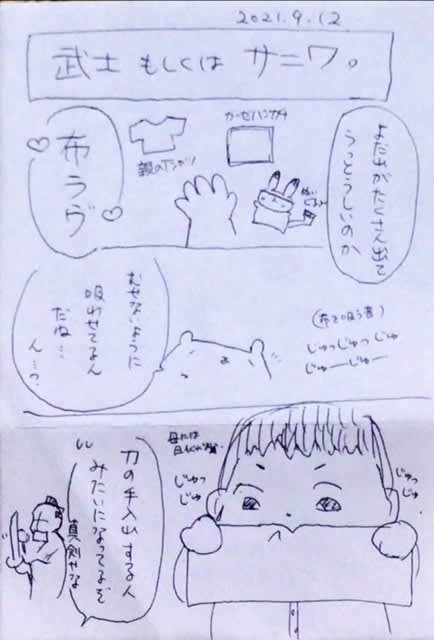 2021.9.12
武士 もしくは サニワ。
よだれがたくさん出て
うっとうしいのか
ガーゼハンカチ
親のTシャツ
布ラヴ
(布を吸う音)
じゅっじゅっ じゅ
じゅーじゅー
むせないように
吸わせてるん
だね…
じゅっ
じゅ
母には
じゅっ
じゅ
刀の手入れする人
みたいになってるぞ
真剣やな